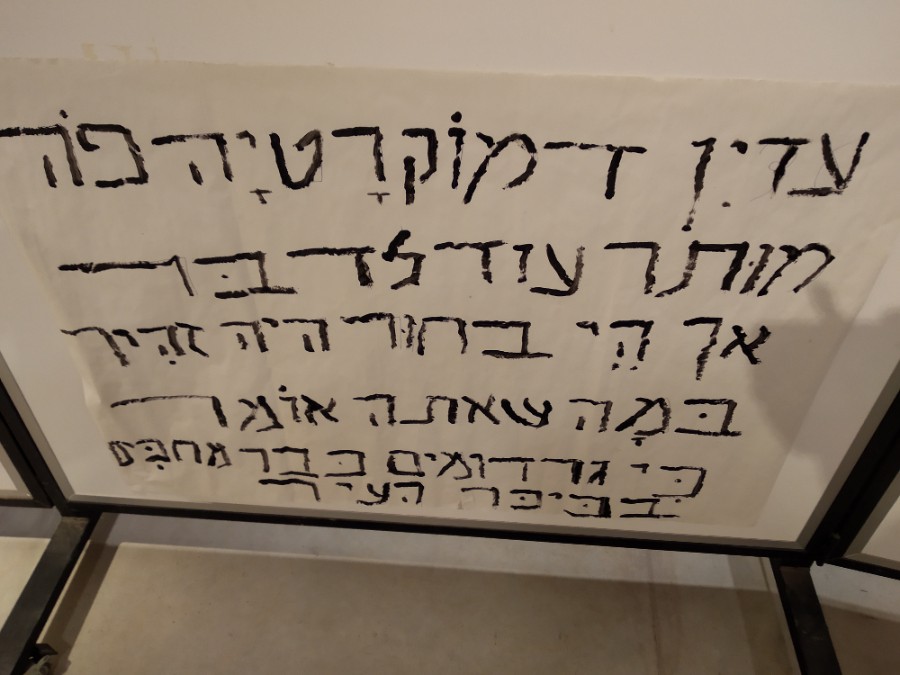 עדיִן דמוֹקרָטיָה פֹּה
מוּתר עוד לדבּר
אך הֵי בחור היה זהִיר
בּמָה שאתה אוֹמר
כּי גרדומים כּבר מחכּים
בּכּיכּר העיר